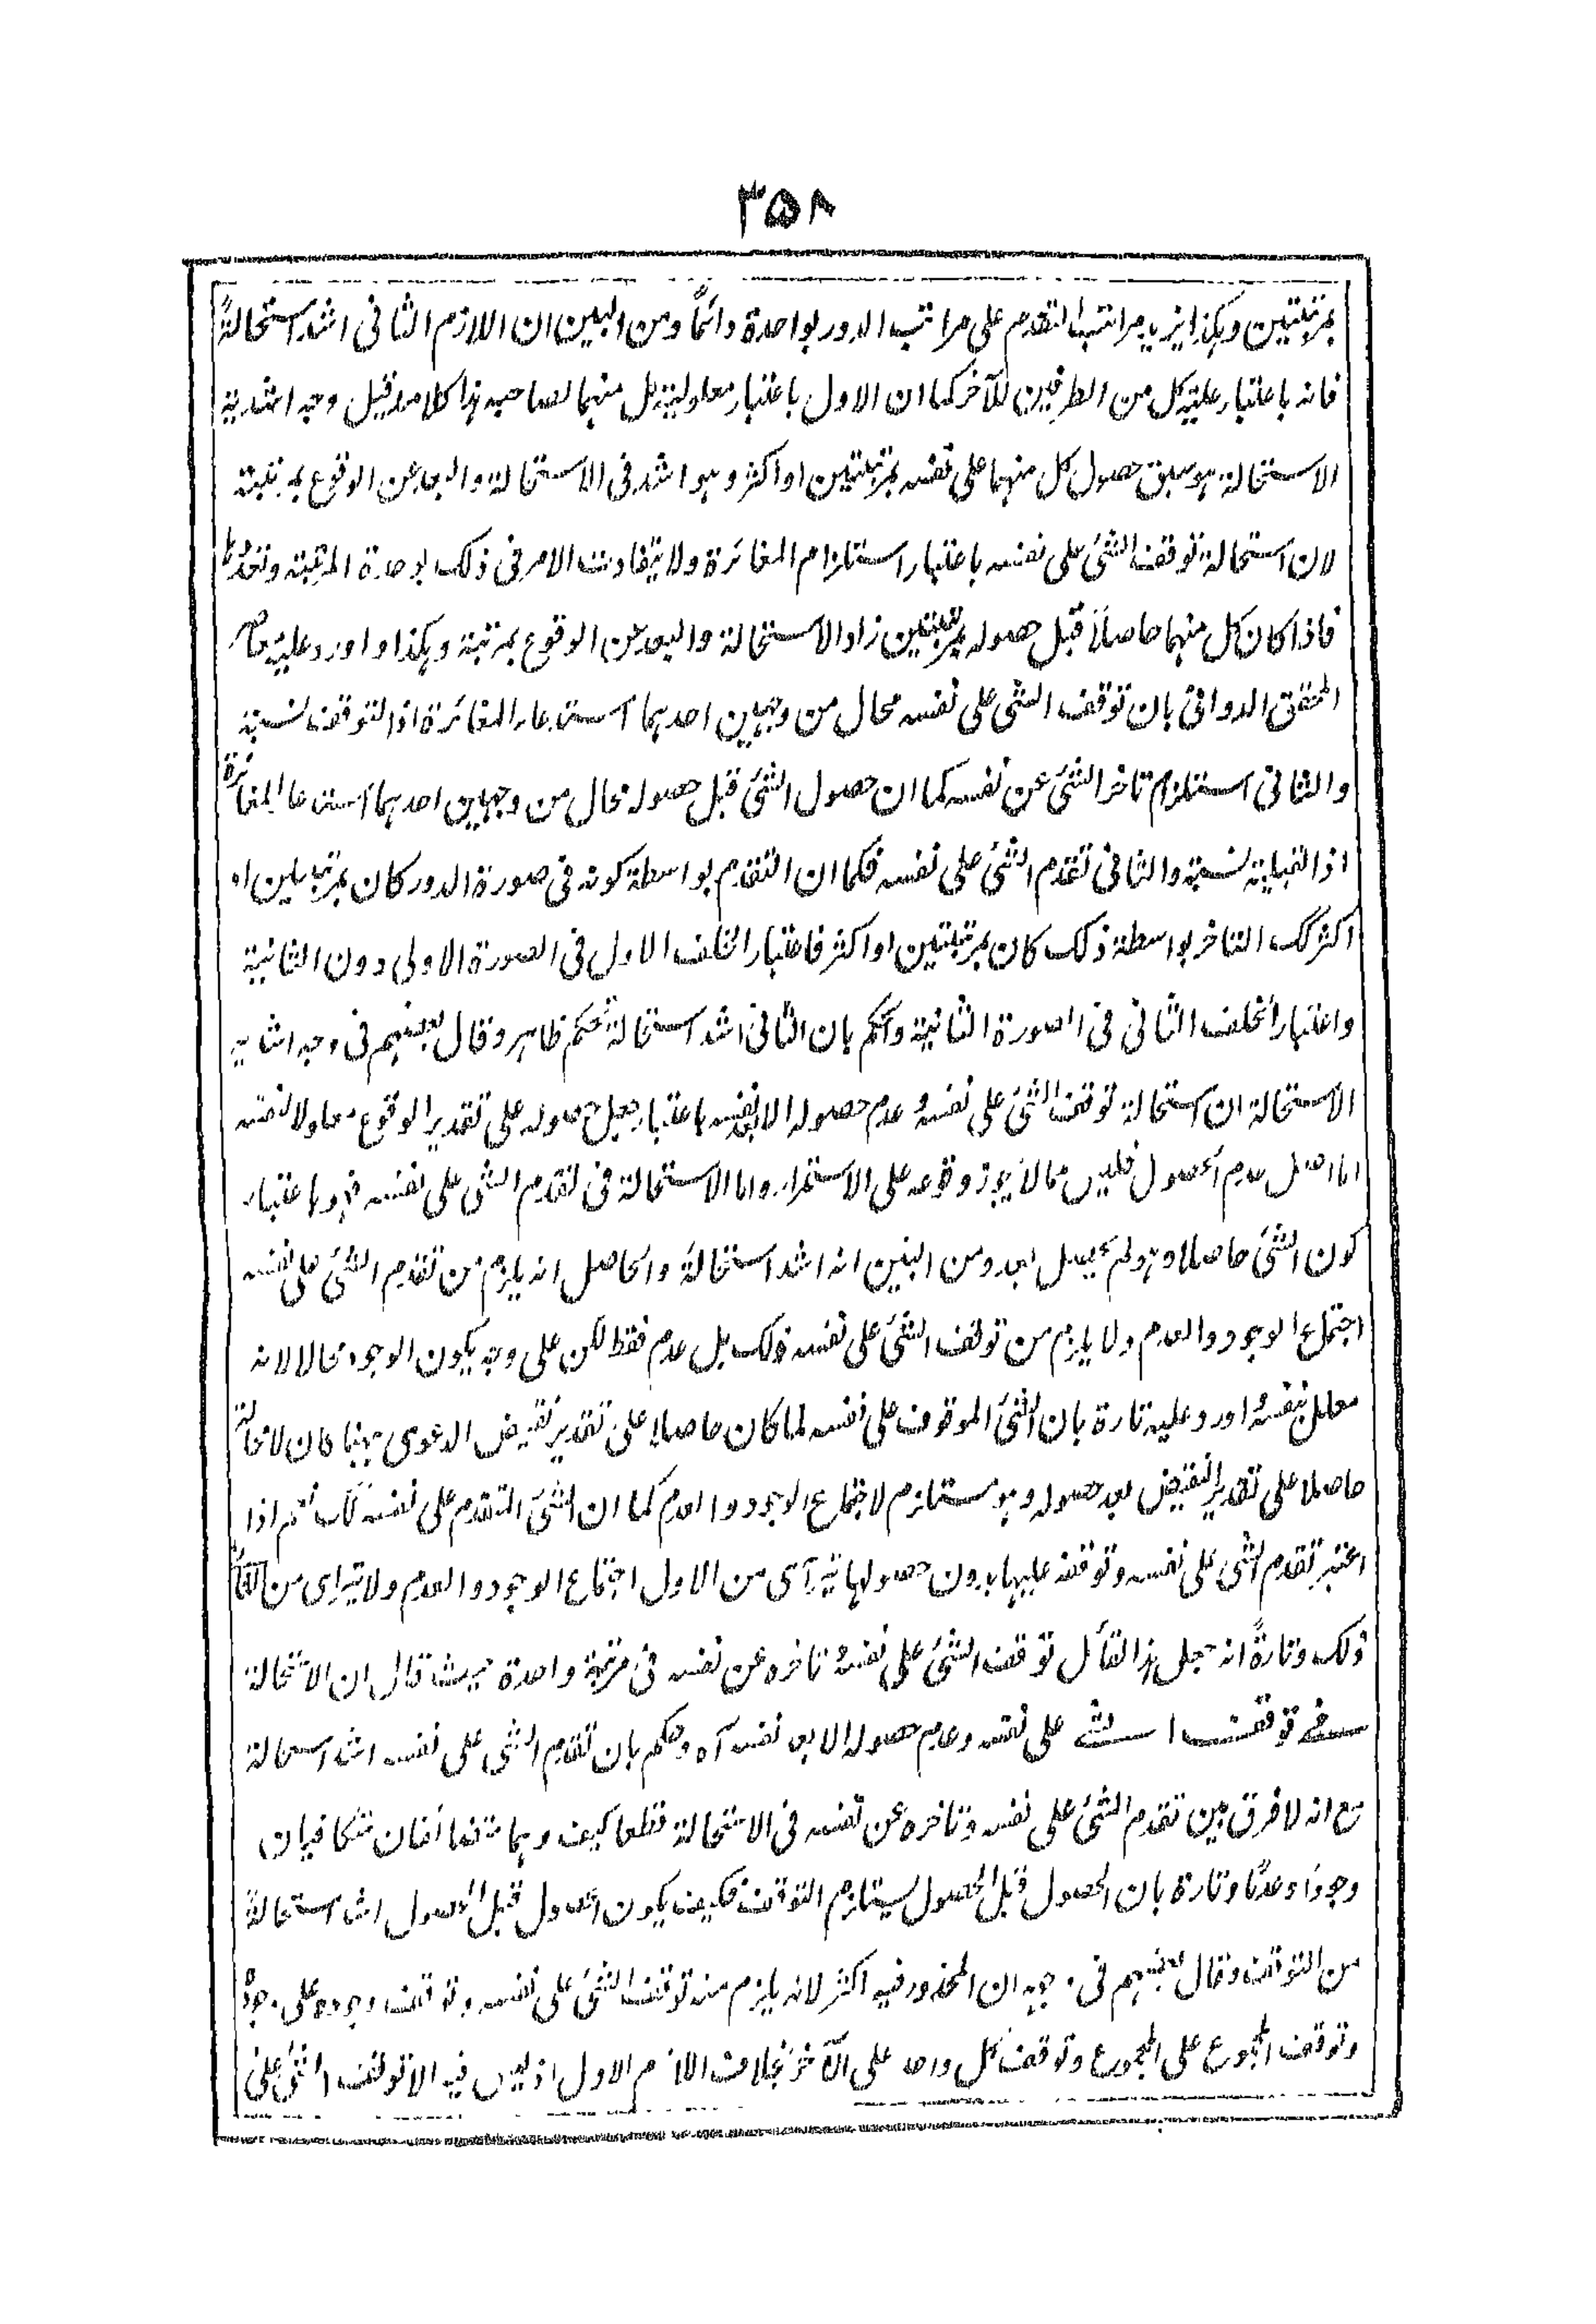 ۳۵۸
بمرتبتين وهكذا يزيد مراتب التقدم على مراتب الدور بواحدة دائمًا ومن البين ان اللازم الثانى اشد استحالةً
فانه باعتبار علية كل من الطرفين للآخر كما ان الاول باعتبار معلولية كل منهما لصاحبه هذا كلامه قيل وجه اشدية
الاستحالة هو سبق حصول كل منهما على نفسه بمرتبتين او اكثر وهو اشد فى الاستحالة والبعد عن الوقوع بمرتبة
لان استحالة توقف الشئ على نفسه باعتبار استلزام المغائرة ولا يتفاوت الامر فى ذلك بوحدة المرتبة وتعددها
فاذا كان كل منهما حاصلاً قبل حصوله بمرتبتين زاد الاستحالة والبعد عن الوقوع بمرتبة وهكذا واورد عليه
المحقق الدوانى بان توقف الشئ على نفسه محال من وجهين احدهما استدعاء المغائرة اذ التوقف نسبة
والثانى استلزام تاخر الشئ عن نفسه كما ان حصول الشئ قبل حصوله محال من وجهين احدهما استدعاء المغائرة
اذ القبلية نسبة والثانى تقدم الشئ على نفسه فكما ان التقدم بواسطة كونه فى صورة الدور كان بمرتبتين او
اكثر كك التاخر بواسطة ذلك كان بمرتبتين او اكثر فاعتبار الخلف الاول فى الصورة الاولى دون الثانية
واعتبار الخلف الثانى فى الصورة الثانية والحكم بان الثانى اشد استحالة تحكم ظاهر وقال بعضهم فى وجه اشدية
الاستحالة ان استحالة توقف الشئ على نفسه وعدم حصوله الا بعد نفسه باعتبار جعل حصوله على تقدير الوقوع معلولا لنفسه
اما اصل عدم الحصول فليس مما لا يجوز وقوعه على الاستمرار واما الاستحالة فى تقدم الشئ على نفسه فهو باعتبار
كون الشئ حاصلا وهو لم يحصل بعد ومن البين انه اشد استحالة والحاصل انه يلزم من تقدم الشئ على نفسه
اجتماع الوجود والعدم ولا يلزم من توقف الشئ على نفسه ذلك بل عدم فقط لكن على وجه يكون الوجود محالا لانه
معلل بنفسه اورد عليه تارة بان الشئ الموقوف على نفسه لما كان حاصلا على تقدير نقيض الدعوى ههنا كان لا محالة
حاصلا على تقدير النقيض بعد حصوله وهو مستلزم لاجتماع الوجود والعدم كما ان الشئ المتقدم على نفسه كك نعم اذا
اعتبر تقدم الشئ على نفسه وتوقفه عليها بدون حصولها يترآى من الاول اجتماع الوجود والعدم ولا يترآى من الثانى
ذلك وتارةً انه جعل هذا القائل توقف الشئ على نفسه وتاخره عن نفسه فى مرتبة واحدة حيث قال ان الاستحالة
فى توقف الشئ على نفسه وعدم حصوله الا بعد نفسه آه وحكم بان تقدم الشئ على نفسه اشد استحالة
مع انه لا فرق بين تقدم الشئ على نفسه وتاخره عن نفسه فى الاستحالة قطعا كيف وهما متضائفان متكافيان
وجودًا وعدمًا وتارة بان الحصول قبل الحصول يستلزم التوقف فكيف يكون الحصول قبل الحصول اشد استحالةً
من التوقف وقال بعضهم فى وجهه ان المحذور فيه اكثر لانه يلزم منه توقف الشئ على نفسه وتوقف وجوده على وجوده
وتوقف المجموع على المجموع وتوقف كل واحد على الآخر بخلاف اللازم الاول اذ ليس فيه الا توقف الشئ على